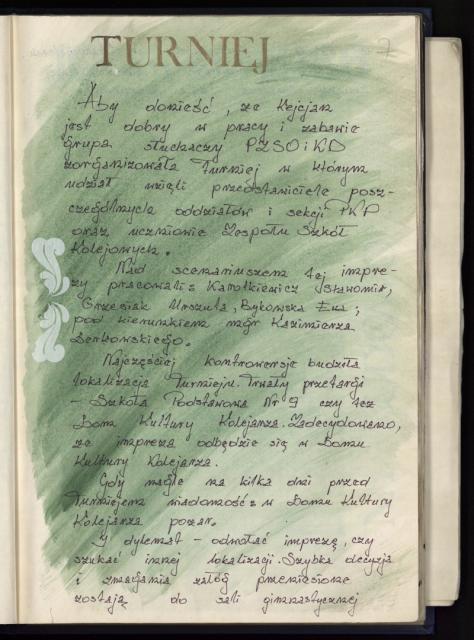 TURNIEJ
7
Aby donieść, że Kejcjan
jest dobry w pracy i zabawie
grupa słuchaczy PZSO i KD
zorganizowała Turniej w którym
udział wzięli przedstawiciele posz-
czególnych oddziałów i sekcji PKP
oraz uczniowie Zespołu Szkół
Kolejowych.
Nad scenariuszem tej impre-
zy pracowali: Karotkiewicz Sławomir,
Grzesiak Urszula, Bykowska Ewa;
pod kierunkiem mgr Kazimierza
Najczęściej kontrowersje budziła
lokalizacja Turnieju. Trwały przetargi
- Szkoła Podstawowa Nr 9 czy też
Dom Kultury Kolejarza. Zadecydowano,
że impreza odbędzie się w Domu
Kultury Kolejarza.
Gdy nagle na kilka dni przed
Turniejem wiadomość: w Domu Kultury
Kolejarza pożar.
I dylemat - odwołać imprezę, czy
szukać innej lokalizacji. Szybka decyzja
i zmagania załóg przeniesione
zostają do sali gimnastycznej